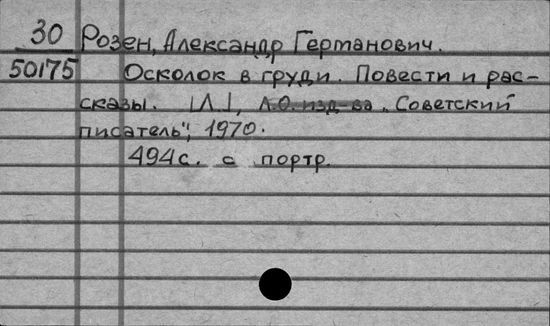 30 Розен, Александр Германович.
50175 Осколок в груди. Повести и рас-
сказы. |Л.|, Л.О. изд-ва „Советский
писатель", 1970.
494с. с портр.